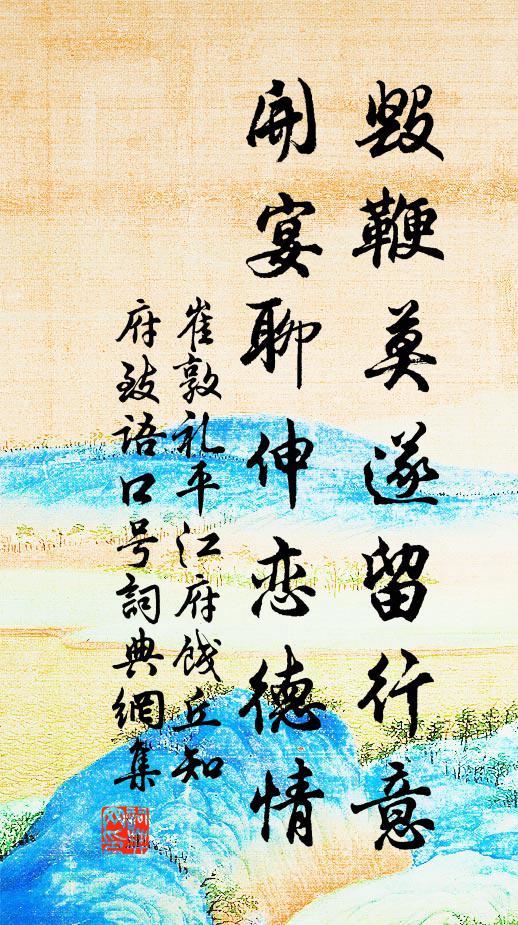 毁鞭莫遂留行意
開宴聊伸恋德情
崔敦礼平江府饯丘知
府致语口号詞典網集